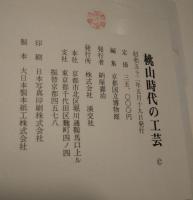 桃山時代の工芸 ©
昭和五十二年五月十九日発行
定価 三五、〇〇〇円
編集 京都国立博物館
発行者 納屋嘉治
発行所 株式会社 淡交社
本社 京都市北区堀川通鞍馬口上ル
支社 東京都千代田区麹町四ノ四
振替京都四五七八
印刷 日本写真印刷株式会社
製本 大日本製本紙工株式会社